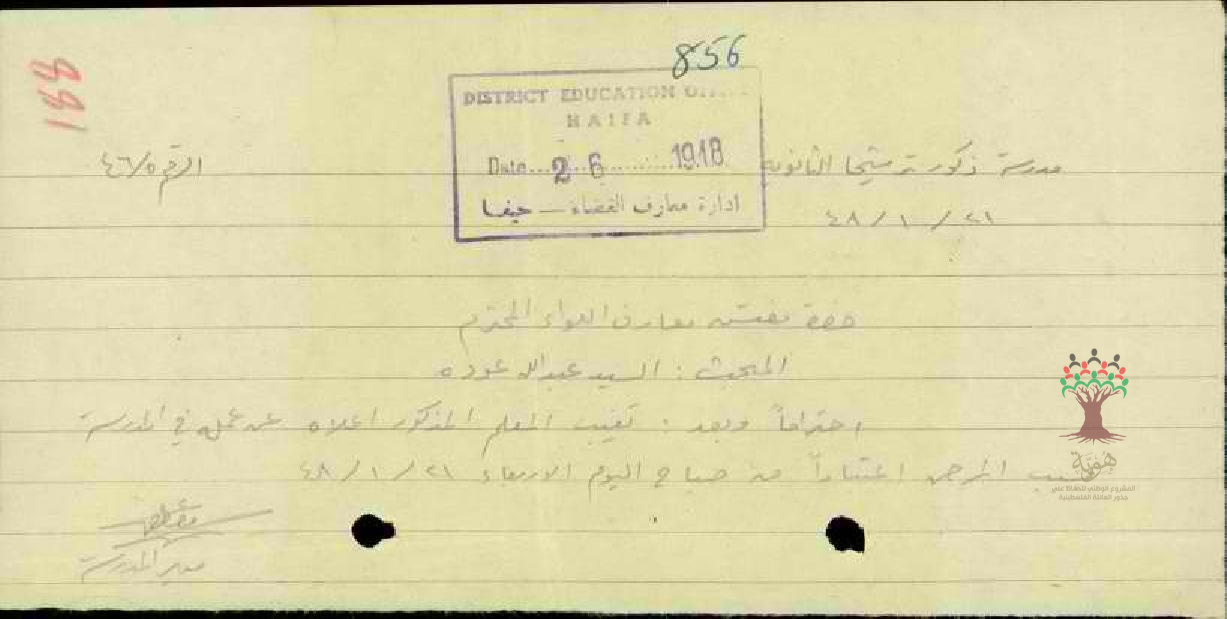 856
188
DISTRICT EDUCATION
HAIFA
Date...2..6.........1948
ادارة معارف القضاء — حيفا
مدرسة ذكور ترشيحا الثانوية
الرقم ٤٦/٥
٢١ / ١ / ٤٨
حضرة مفتش معارف اللواء المحترم
المبحث : السيد عبدالله عوده
احتراماً وبعد : تغيب المعلم المذكور اعلاه عن عمله في المدرسة
بسبب المرض اعتباراً من صباح اليوم الاربعاء ٢١ / ١ / ٤٨
مدير المدرسة
هوية
المشروع الوطني للحفاظ على
جذور العائلة الفلسطينية